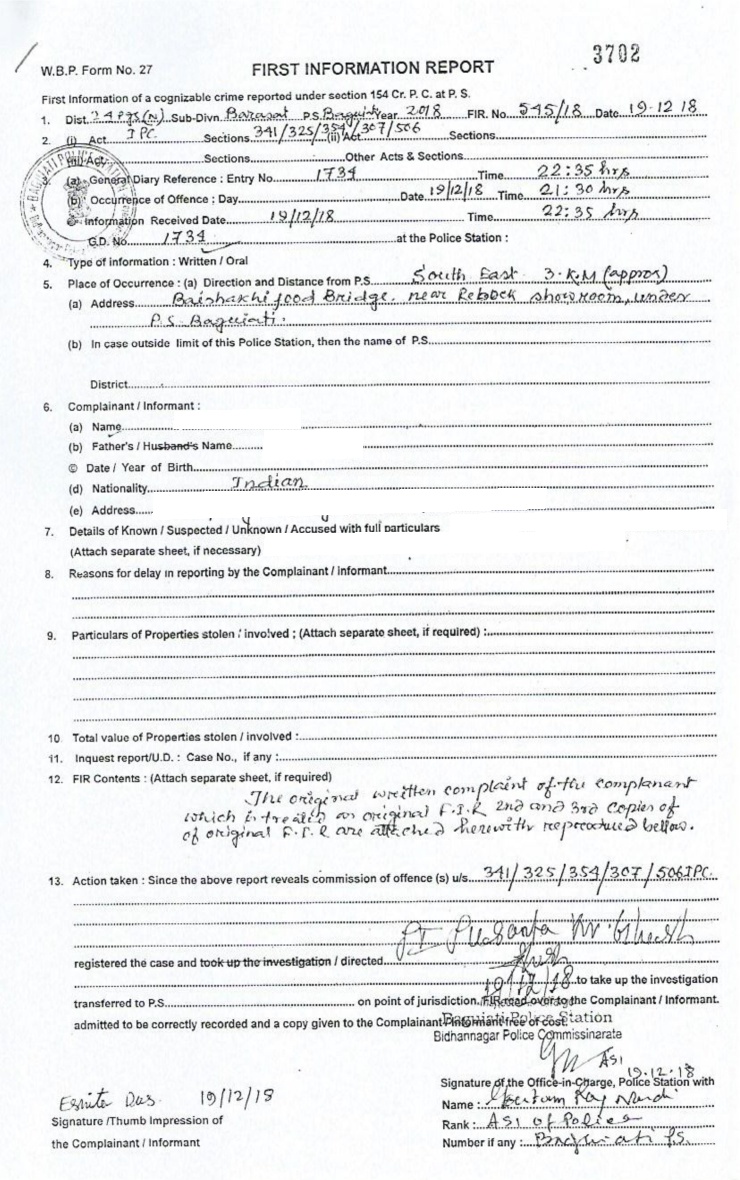 3702
W.B.P. Form No. 27 FIRST INFORMATION REPORT
First Information of a cognizable crime reported under section 154 Cr. P. C. at P. S.
1. Dist. 24 Pgs(N) Sub-Divn. Barasat P.S. Year 2018 FIR. No. 545/18 Date 19-12 18
2. (i) Act IPC. Sections 341/325/354/307/506 (ii) Act Sections
(iii) Act Sections Other Acts & Sections
3. (a) General Diary Reference : Entry No. 1734 Time 22:35 hrs
(b) Occurrence of Offence : Day Date 19/12/18 Time 21:30 hrs
© Information Received Date 19/12/18 Time 22:35 hrs
G.D. No. 1734 at the Police Station :
4. Type of information : Written / Oral
5. Place of Occurrence : (a) Direction and Distance from P.S. South East 3.K.M (approx)
(a) Address Baishakhi food Bridge. near Rebock showroom, under
P.S. Baguiati.
(b) In case outside limit of this Police Station, then the name of P.S.
District
6. Complainant / Informant :
(a) Name
(b) Father's / Husband's Name
© Date / Year of Birth
(d) Nationality Indian
(e) Address
7. Details of Known / Suspected / Unknown / Accused with full particulars
(Attach separate sheet, if necessary)
8. Reasons for delay in reporting by the Complainant / Informant
9. Particulars of Properties stolen / involved ; (Attach separate sheet, if required) :
10. Total value of Properties stolen / involved :
11. Inquest report/U.D. : Case No., if any :
12. FIR Contents : (Attach separate sheet, if required)
The original written complaint of the complanant
which is treated as original F.I.R 2nd and 3rd copies of
of original F.I.R are attached herewith reproduced bellow.
13. Action taken : Since the above report reveals commission of offence (s) u/s. 341/325/354/307/506 IPC.
registered the case and took up the investigation / directed
19/12/18 to take up the investigation
transferred to P.S. on point of jurisdiction. FIR read over to the Complainant / Informant.
admitted to be correctly recorded and a copy given to the Complainant Informant free of cost.
Baguiati Police Station
Bidhannagar Police Commissinarate
ASI
19.12.18
Signature of the Office-in-Charge, Police Station with
19/12/18
Name :
Signature /Thumb Impression of
Rank : ASI of Police
the Complainant / Informant
Number if any : Baguiati P.S.